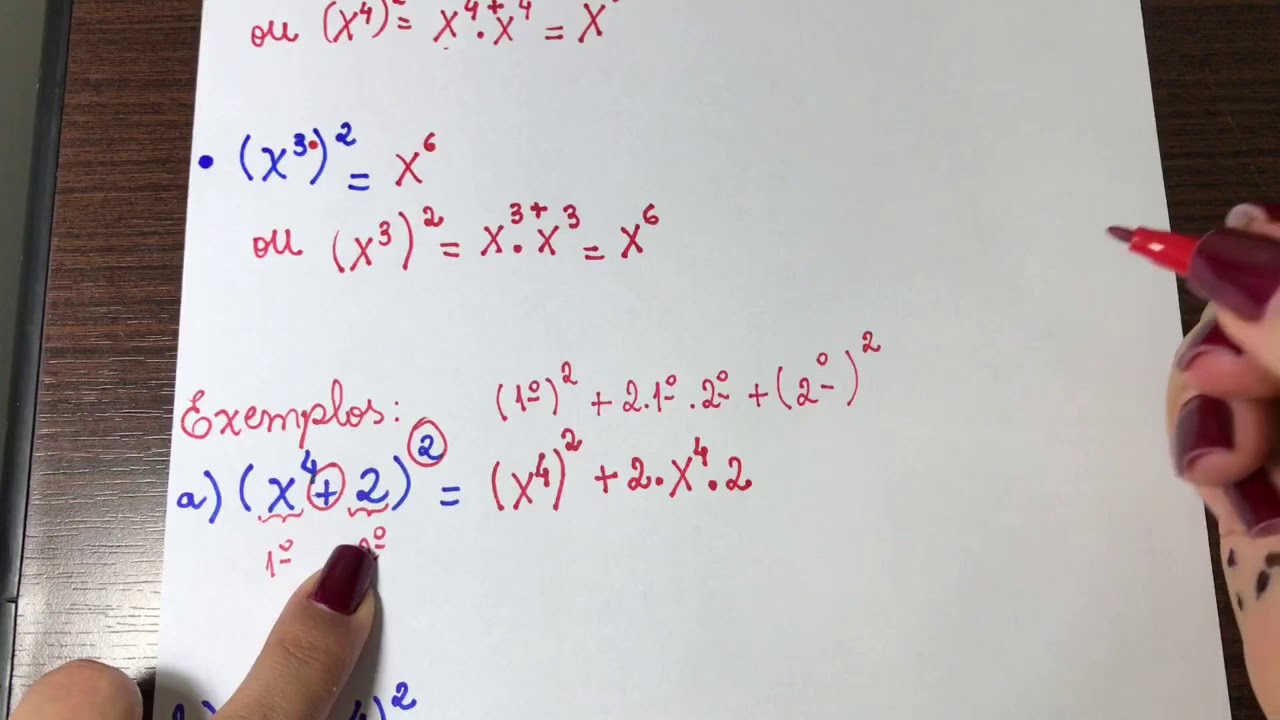 ou (x⁴)² = x⁴⁺ · x⁴ = x
• (x³·)² = x⁶
ou (x³)² = x³⁺ · x³ = x⁶
Exemplos: (1º)² + 2.1º.2º + (2º)²
a) (x⁴ + 2)² = (x⁴)² + 2·x⁴·2
1º 2º
)²